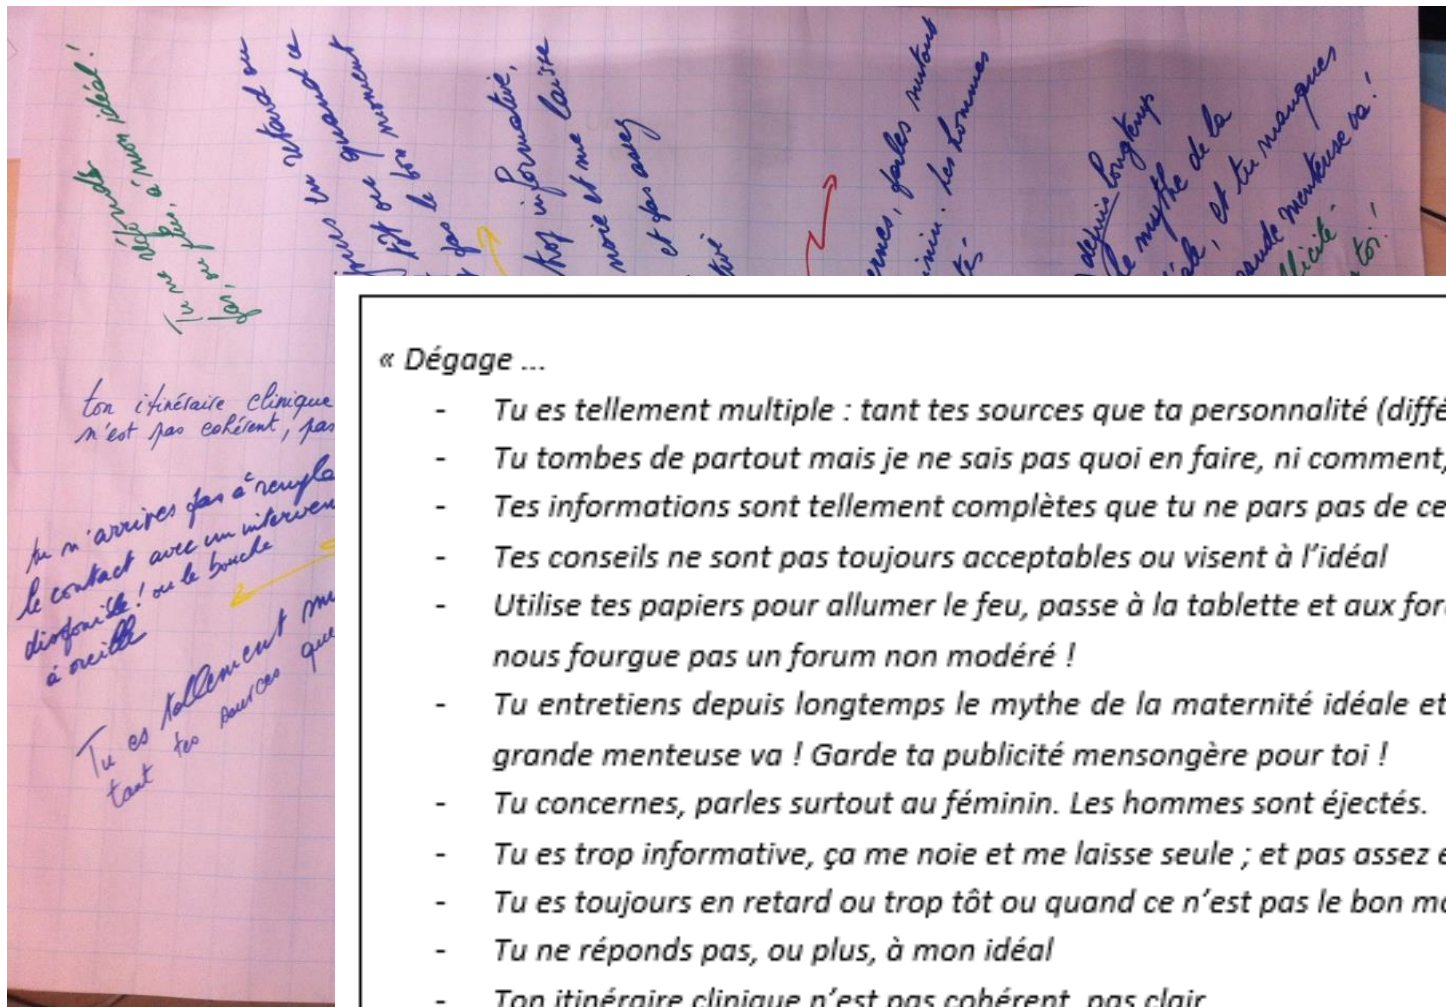 Tu ne réponds
pas, ou plus, à mon idéal !
retard ou
quand ce
tôt ou
pas le bon moment
trop informative,
noie et me laisse
et pas assez
parles surtout
Les hommes
depuis longtemps
le mythe de la
et tu manques
grande menteuse va !
toi !
ton itinéraire clinique
n'est pas cohérent, pas
tu n'arrives pas à rempla
le contact avec un interven
disponible ! ou le bouche
à oreille
Tu es tellement mu
tant tes sources que
« Dégage ...
- Tu es tellement multiple : tant tes sources que ta personnalité (diffé
- Tu tombes de partout mais je ne sais pas quoi en faire, ni comment,
- Tes informations sont tellement complètes que tu ne pars pas de ce
- Tes conseils ne sont pas toujours acceptables ou visent à l'idéal
- Utilise tes papiers pour allumer le feu, passe à la tablette et aux for
nous fourgue pas un forum non modéré !
- Tu entretiens depuis longtemps le mythe de la maternité idéale et
grande menteuse va ! Garde ta publicité mensongère pour toi !
- Tu concernes, parles surtout au féminin. Les hommes sont éjectés.
- Tu es trop informative, ça me noie et me laisse seule ; et pas assez e
- Tu es toujours en retard ou trop tôt ou quand ce n'est pas le bon mo
- Tu ne réponds pas, ou plus, à mon idéal
- Ton itinéraire clinique n'est pas cohérent, pas clair